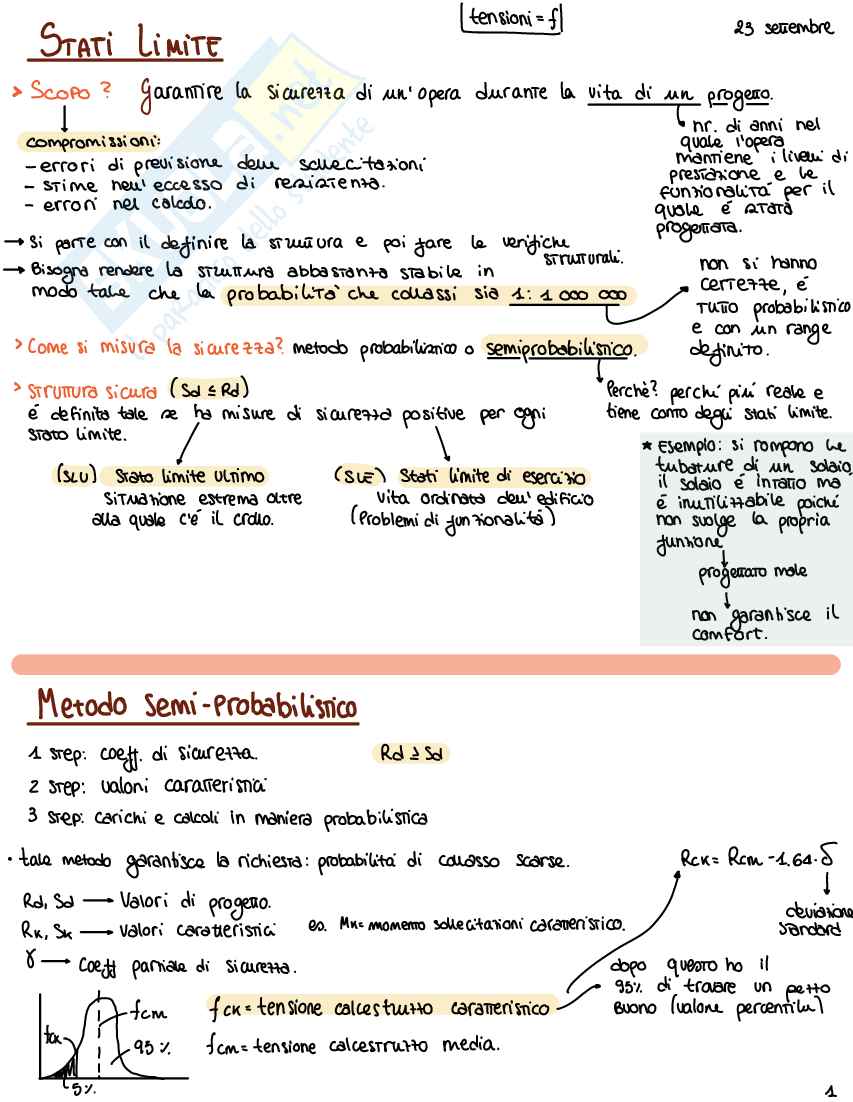 tensioni = f
23 settembre
STATI LIMITE
> SCOPO? Garantire la sicurezza di un'opera durante la vita di un progetto.
nr. di anni nel
quale l'opera
mantiene i livelli di
prestazione e le
funzionalità per il
quale é stata
progettata.
compromissioni:
- errori di previsione delle sollecitazioni
- stime nell'eccesso di resistenza.
- errori nel calcolo.
→ Si parte con il definire la struttura e poi fare le verifiche
strutturali.
→ Bisogna rendere la struttura abbastanza stabile in
modo tale che la probabilità che collassi sia 1:1 000 000
non si hanno
certezze, é
tutto probabilistico
e con un range
definito.
> Come si misura la sicurezza? metodo probabilistico o semiprobabilistico.
Perchè? perchí piú reale e
tiene conto degli stati limite.
> Struttura sicura (Sd ≤ Rd)
é definita tale se ha misure di sicurezza positive per ogni
stato limite.
(SLU) Stato limite ultimo
situazione estrema oltre
alla quale c'é il crollo.
(SLE) Stati limite di esercizio
vita ordinata dell'edificio
(Problemi di funzionalitá)
* Esempio: si rompono le
tubature di un solaio,
il solaio é intatto ma
é inutilizzabile poiché
non svolge la propria
funzione
progettato male
non garantisce il
comfort.
Metodo Semi-Probabilistico
1 step: coeff. di sicurezza. Rd ≥ Sd
2 step: valori caratteristici
3 step: carichi e calcoli in maniera probabilistica
· tale metodo garantisce la richiesta: probabilità di collasso scarse.
Rck = Rcm - 1.64 · δ
deviazione
standard
Rd, Sd → Valori di progetto.
Rk, Sk → valori caratteristici es. Mk = momento sollecitazioni caratteristico.
γ → coeff parziale di sicurezza.
dopo questo ho il
95% di trovare un pezzo
buono (valore percentile)
fck = tensione calcestruzzo caratteristico
fcm = tensione calcestruzzo media.
fcm
fck
95 %
5%
1
SKUOLA.net
il paradiso dello studente